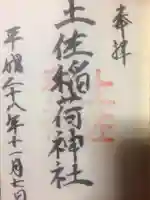 奉拝
土佐稲荷神社
平成二十八年十一月七日